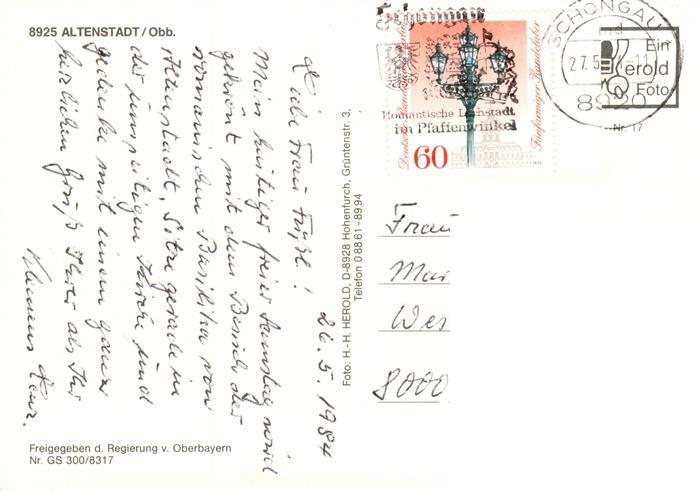 8925 ALTENSTADT / Obb.
26.5.1984
Liebe Frau !
Mein heutiger freier Samstag wird
gekrönt mit dem Besuch der
romanischen Basilika von
Altenstadt. Sitze gerade in
der Kirche und
gedenke mit einem ganz
herzlichen Gruß Ihrer als Ihr
Klemens
Freigegeben d. Regierung v. Oberbayern
Nr. GS 300/8317
Foto: H.-H. HEROLD, D-8928 Hohenfurch, Grüntenstr. 3,
Telefon 0 88 61 - 89 94
Schongau
Romantische Lechstadt
im Pfaffenwinkel
Deutsche Bundespost Berlin
60
SCHONGAU
27.5
8920
Ein
erold
Foto
Nr. 17
Frau
Mar
Wes
8000